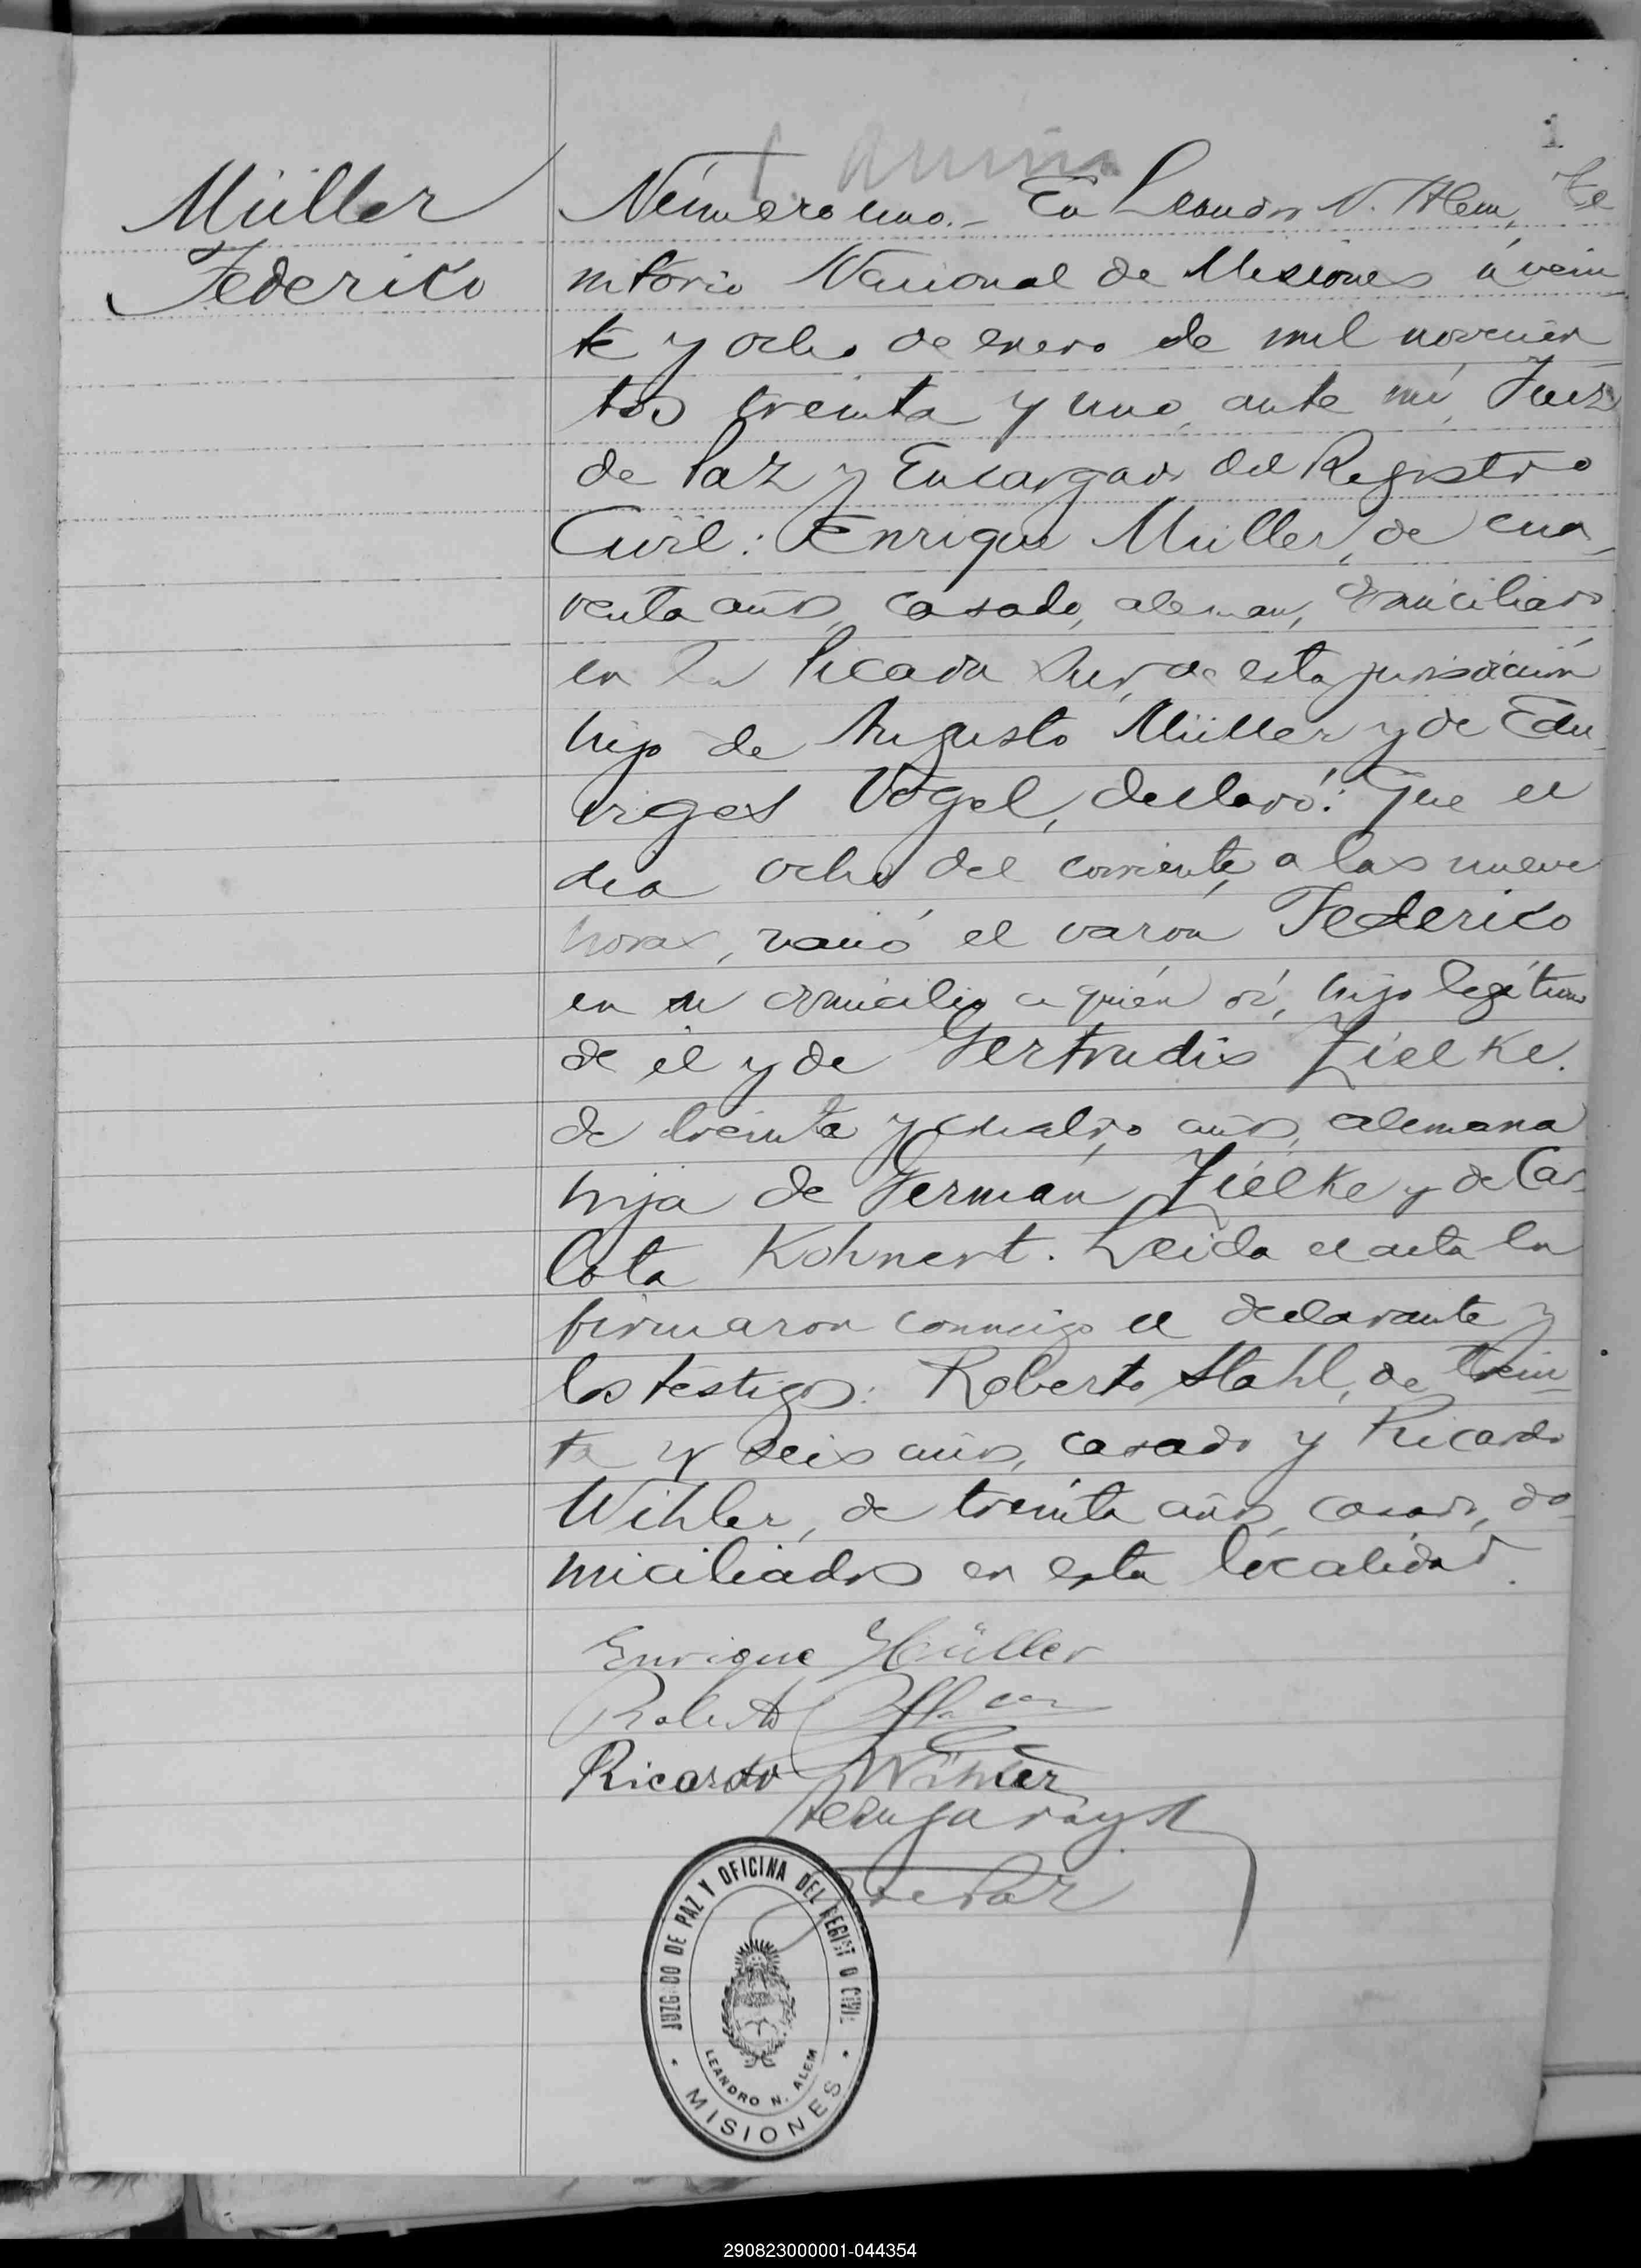 1
Müller
Federico
Número uno.- En Leandro N. Alem, Te
rritorio Nacional de Misiones á vein
te y ocho de enero de mil novecien
tos treinta y uno, ante mí, Juez
de Paz y Encargado del Registro
Civil: Enrique Müller, de cua
renta años, casado, aleman, domiciliado
en la Picada Sur, de esta jurisdicción
hijo de Augusto Müller y de Edu
viges Vogel, declaró: Que el
dia ocho del corriente, a las nueve
horas, nació el varón Federico
en su domicilio a quién ví, hijo legítimo
de él y de Gertrudis Zielke.
de treinta y cuatro años, alemana
hija de German Zielke y de Car
lota Kohnert. Leida el acta la
firmaron conmigo el declarante y
los testigos: Roberto Stahl, de trein
ta y seis años, casado y Ricardo
Wihler, de treinta años, casado, do
miciliados en esta localidad.
Enrique Müller
Ricardo Wihler
de Paz
JUZGADO DE PAZ Y OFICINA DEL REGIST O CIVIL
LEANDRO N. ALEM
MISIONES
290823000001-044354